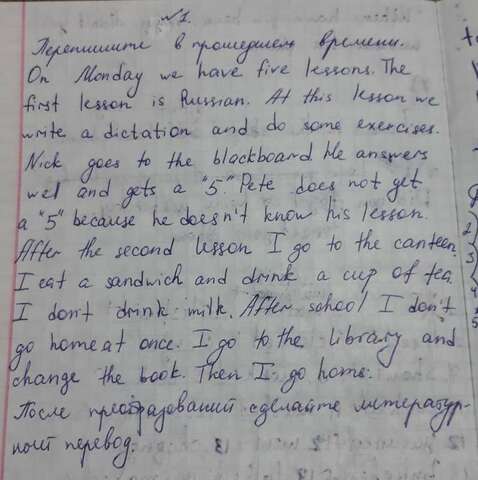 №1.
Перепишите в прошедшем времени.
On Monday we have five lessons. The
first lesson is Russian. At this lesson we
write a dictation and do some exercises.
Nick goes to the blackboard He answers
wel and gets a "5". Pete does not get
a "5" because he doesn't know his lesson.
After the second lesson I go to the canteen.
I eat a sandwich and drink a cup of tea.
I don't drink milk. After school I don't
go home at once. I go to the library and
change the book. Then I go home.
После преобразований сделайте литератур-
ный перевод.